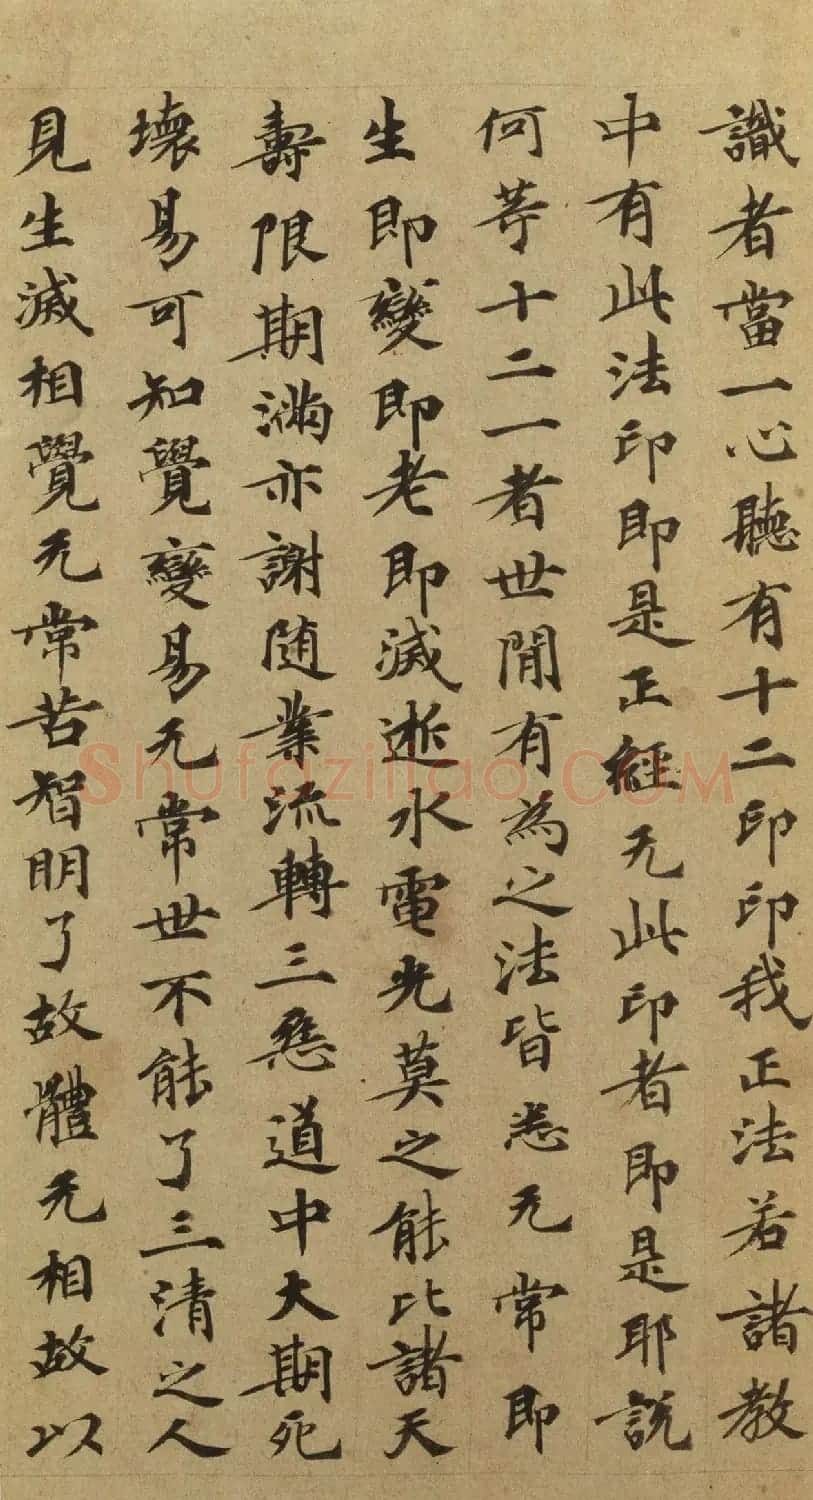 識者當一心聽有十二印印我正法若諸教
中有此法印即是正經无此印者即是耶説
何等十二一者世間有為之法皆悉无常即
生即變即老即滅逝水電光莫之能比諸天
壽限期滿亦謝随業流轉三惡道中大期死
壞易可知覺變易无常世不能了三清之人
見生滅相覺无常苦智明了故體无相故以
Shufaziliao.COM